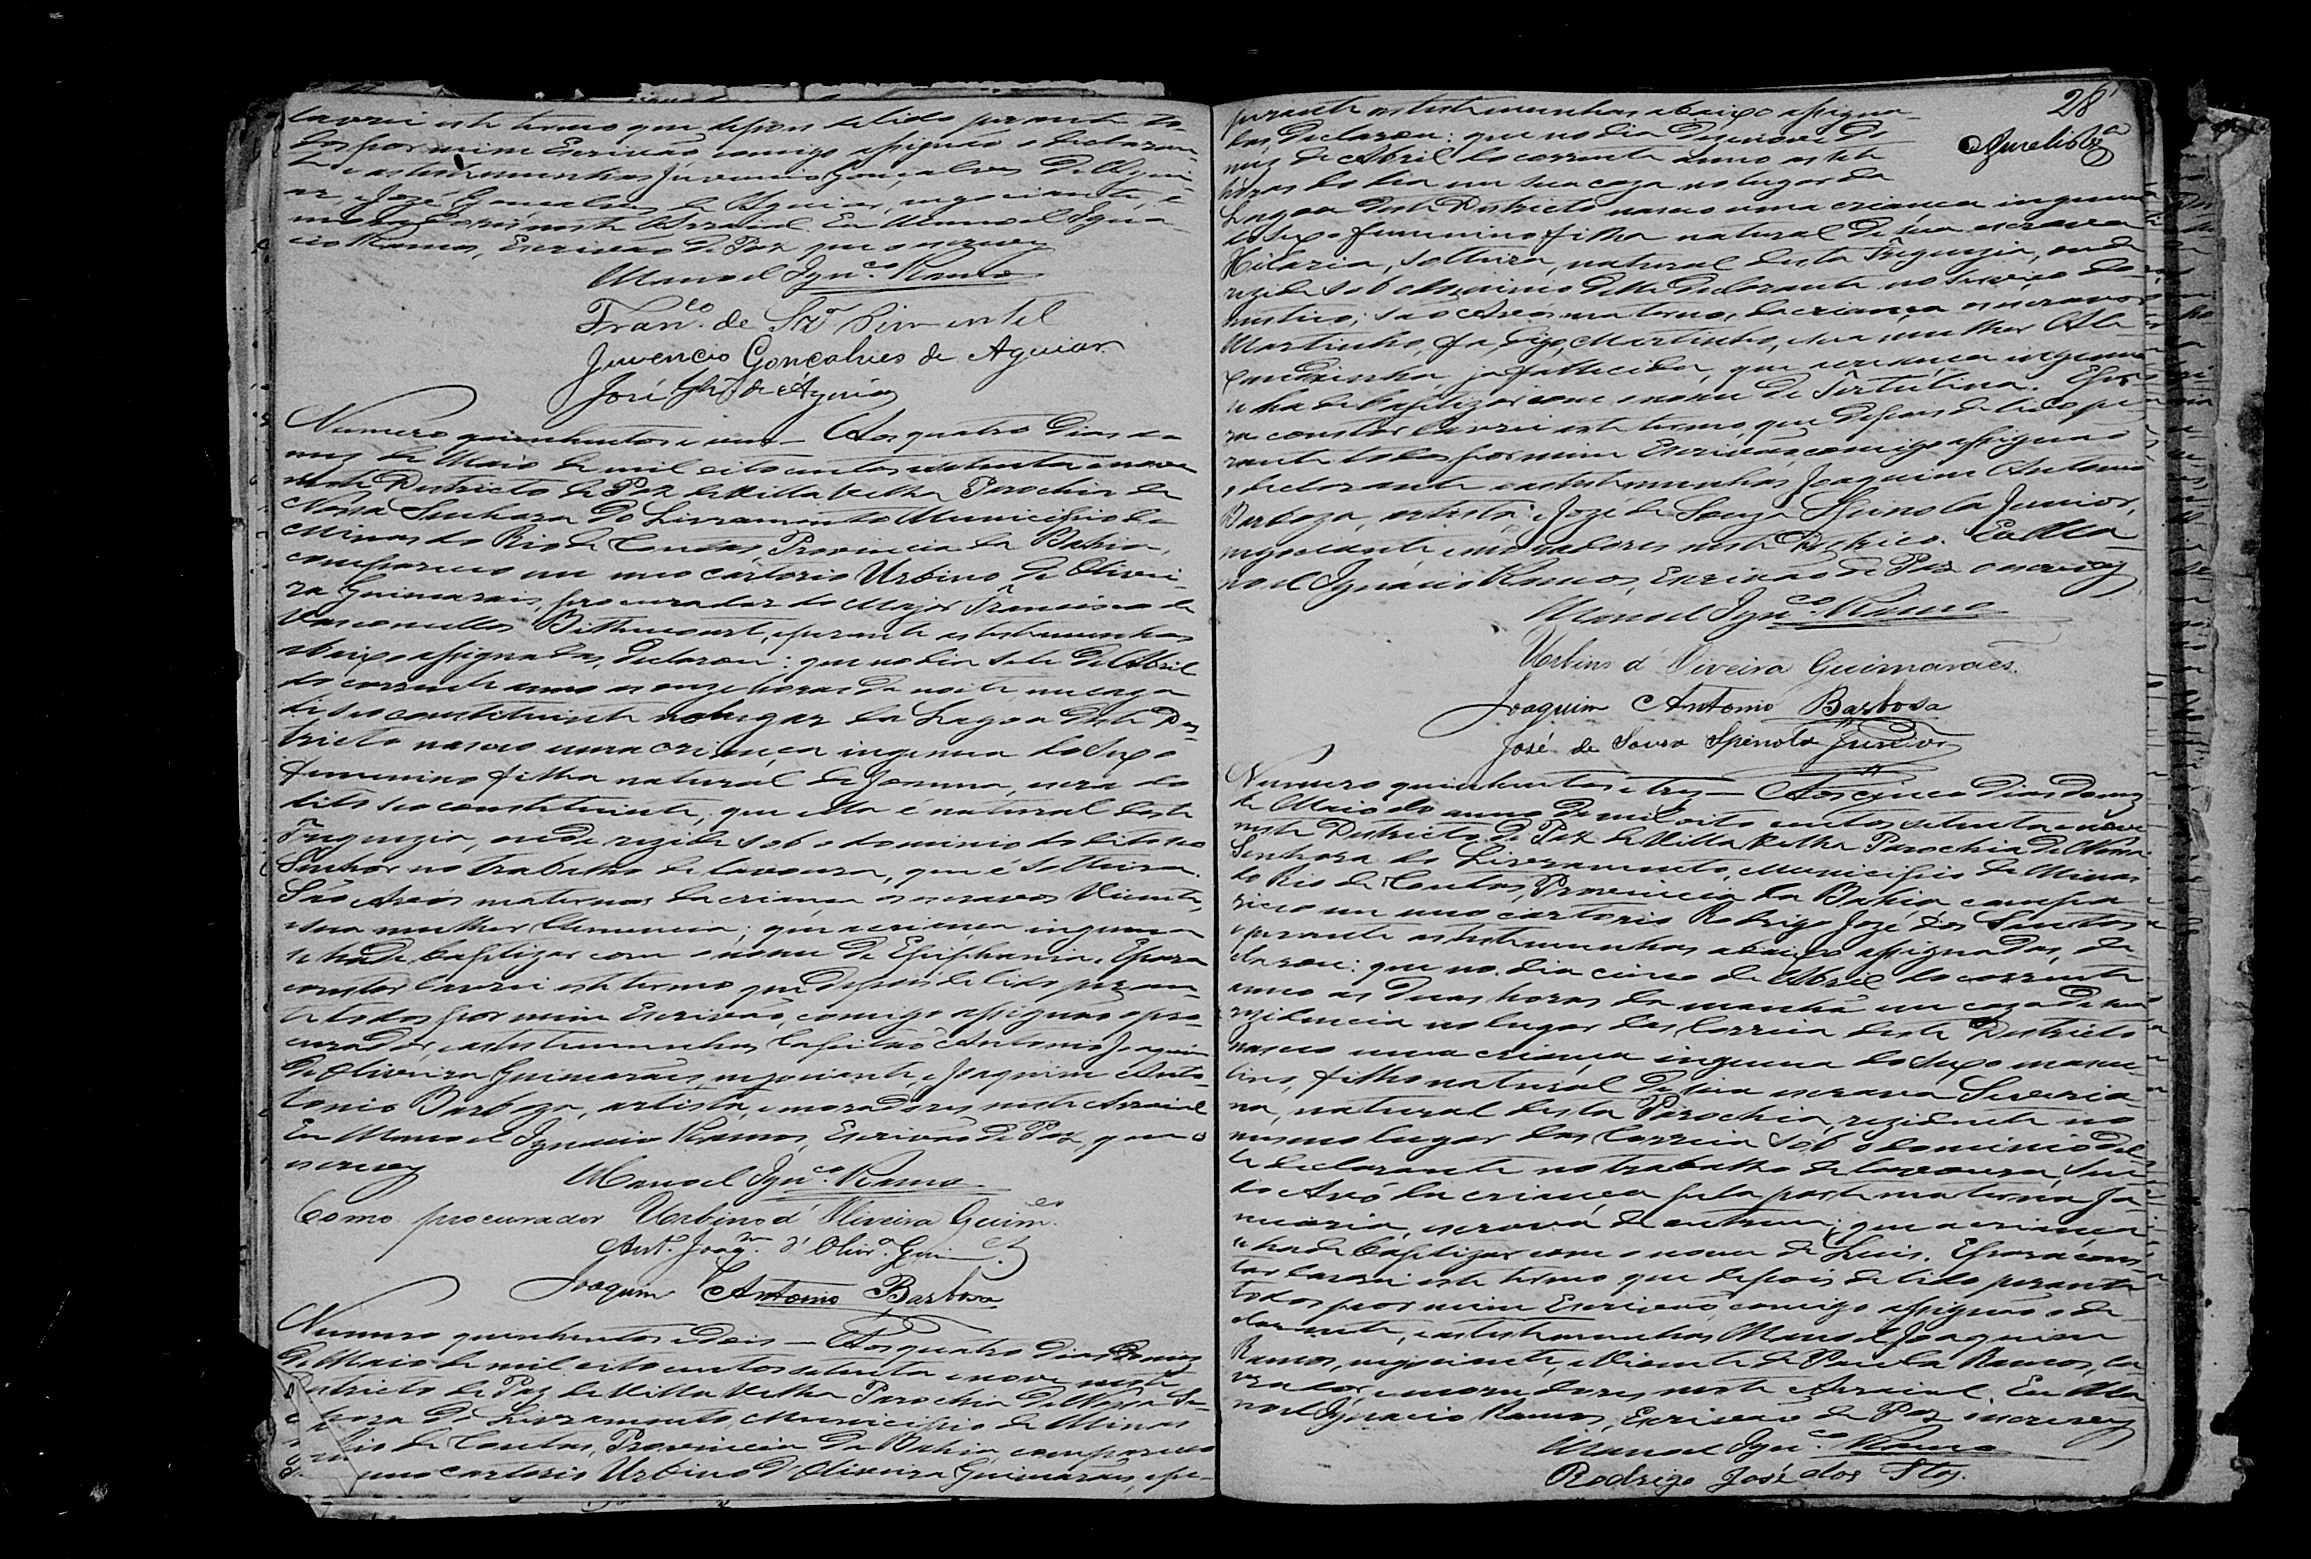 lavrei este termo que depois de lido perante to-
dos por mim Escrivão comigo assignão o declaran-
te e as testemunhas Juvencio Gonçalves de Agui-
ar, e José Gonçalves de Aguiar, negociante, e
moradores neste Arraial. Eu Manoel Igna-
cio Ramos, Escrivão de Paz que o escrevy
Manoel Ign.co Ramos
Fran.co de Sza Pimentel
Juvencio Gonçalves de Aguiar
José Glz de Aguiar
Numero quinhentos e um — Aos quatro dias do
mez de Maio de mil oito centos setenta e nove
neste Districto de Paz de Villa Velha Parochia de
Nossa Senhora do Livramento Municipio de
Minas do Rio de Contas, Provincia da Bahia,
compareceo em meo cartorio Urbino de Olivei-
ra Guimarais, procurador do Major Francisco de
Vasconcellos Bittencourt, e perante as testemunhas
abaixo assignadas, declarou: que no dia sete de Abril
do corrente anno as onze horas da noite em caza
de seo constituinte no lugar da Lagoa deste Des-
tricto nasceo uma criança ingenua do sexo
femenino filha natural de Joanna, escra do
dito seo constituinte, que ella é natural desta
Freguezia, onde rezide sob o dominio do dito seo
Senhor no trabalho de lavoura, que é solteira.
São Avós maternos da criança os escravos Vicente,
e sua mulher Clemencia; que a criança ingenua
se hade baptizar com o nome de Epiphania. E para
constar lavrei este termo que depois de lido peran-
te todos por mim Escrivão, comigo assignão o pro-
curador, e as testemunhas Capitão Antonio Joaquim
de Oliveira Guimarães, negociante, e Joaquim Anto-
tonio Barboza, artista, e moradores neste Arraial
Eu Manoel Ignacio Ramos, Escrivão de Paz, que o
escrevy
Manoel Ign.co Ramos
Como procurador Urbino d'Oliveira Guim.es
Ant.o Joaq.m d'Oliv.a Guim.es
Joaquim Antonio Barbosa
Numero quinhentos e dois — Aos quatro dias do mez
de Maio de mil oito centos setenta e nove neste
Districto de Paz de Villa Velha Parochia de Nossa Se-
nhora do Livramento Municipio de Minas
do Rio de Contas, Provincia da Bahia, compareceo
meo cartorio Urbino d'Oliveira Guimarais, e pe-
28
perante as testemunhas abaixo assigna-
das, declarou: que no dia dezenove do
mez de Abril do corrente anno as sete
horas do dia em sua caza no lugar da
Lagoa deste Destricto nasceo uma criança ingenua
do sexo femenino filha natural de sua escrava
Hilaria, solteira, natural desta Freguezia, onde
rezide sob o dominio delle declarante no serviço do-
mestico; são Avós maternos da criança os escravos
Martinho, fa, digo, Martinho, e sua mulher Ale-
xandrinha, ja fallecida, que a criança ingenua
se ha de baptizar com o nome de Tertulina. E pa-
ra constar lavrei este termo, que depois de lido pe-
rante todos por mim Escrivão, comigo assignão
o declarante e as testemunhas Joaquim Antonio
Barboza, artista, e José de Souza Spinola Junior,
negociante, e moradores neste Districo. Eu Ma-
noel Ignacio Ramos, Escrivão de Paz o escrevy
Manoel Ign.co Ramos
Urbino d'Oliveira Guimarães.
Joaquim Antonio Barbosa
José de Souza Spinola Junior
Numero quinhentos e tres — Aos cinco dias do mez
de Maio do anno de mil oito centos setenta e nove
neste Districto de Paz de Villa Velha Parochia de Nossa
Senhora do Livramento, Municipio de Minas
do Rio de Contas, Provincia da Bahia compa-
receo em meo cartorio Rodrigo José dos Santos
e perante as testemunhas abaixo assignadas, de-
clarou: que no dia cinco de Abril do corrente
anno as duas horas da manhã em caza de sua
rezidencia no lugar das Correia deste Districto
nasceo uma criança ingenua do sexo mascu-
lino, filho natural de sua escrava Severia-
na, natural desta Parochia, rezidente no
mesmo lugar das Correia sob o dominio del-
le declarante no trabalho de lavoura, sen-
do Avó da criança pela parte materna Ja-
nuaria, escrava de outrem; que a criança
se hade baptizar com o nome de Luis. E para cons-
tar lavrei este termo que depois de lido perante
todos por mim Escrivão comigo assignão o de-
clarante, e as testemunhas Manoel Joaquim
Ramos, negociante, e Vicente de Paula Ramos, la-
vrador, e moradores neste Arraial. Eu Ma-
noel Ignacio Ramos, Escrivão de Paz o escrevy
Manoel Ign.co Ramos
Rodrigo José dos Stos.